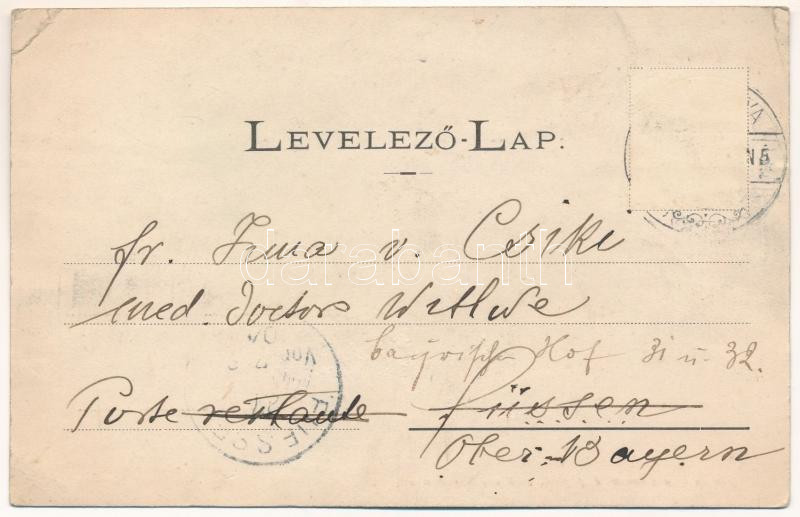 LEVELEZŐ-LAP.
fr. Irma v. Csike
med. Doctors Wittwe
bayrischer Hof 31 u. 32.
Poste restante Füssen
Ober-Bayern
darabanth
VA
N 5
FÜSSEN
VOR